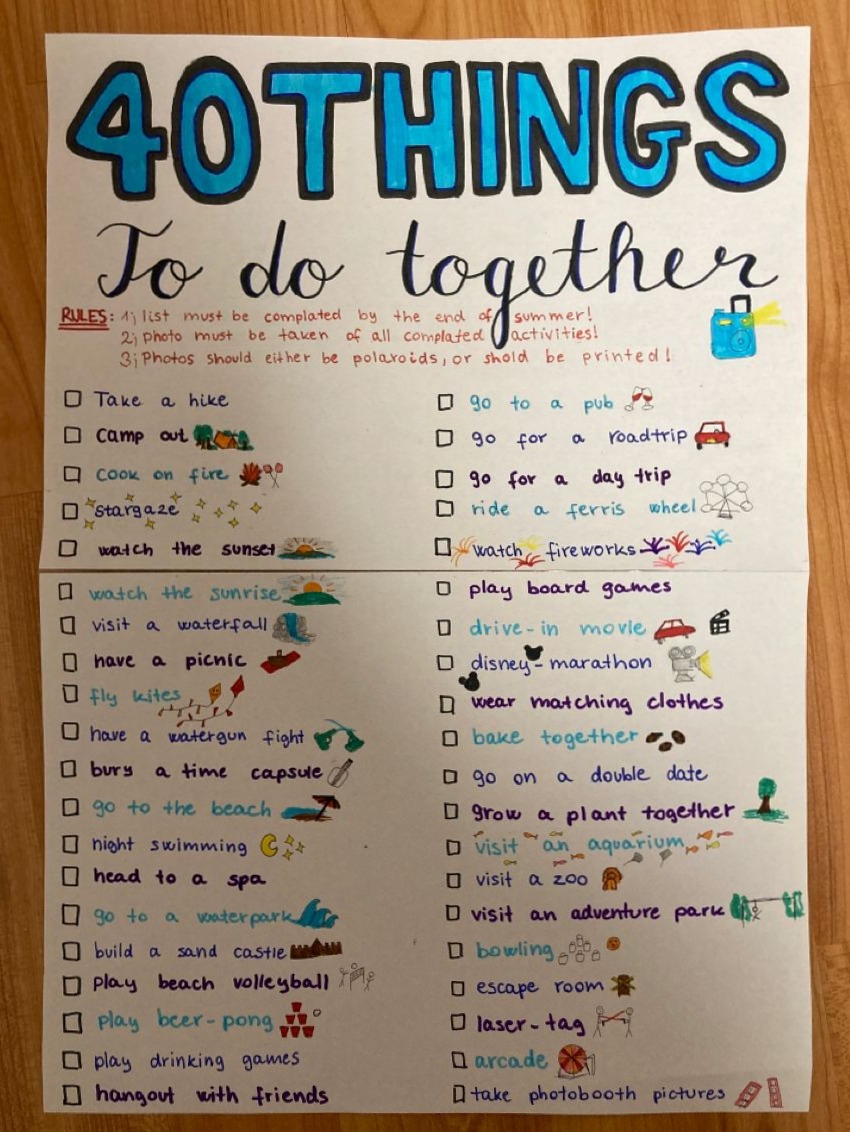 40 THINGS
To do together
RULES: 1; list must be complated by the end of summer!
2; photo must be taken of all complated activities!
3; Photos should either be polaroids, or shold be printed!
Take a hike
camp out
cook on fire
stargaze
watch the sunset
watch the sunrise
visit a waterfall
have a picnic
fly kites
have a watergun fight
bury a time capsule
go to the beach
night swimming
head to a spa
go to a waterpark
build a sand castle
play beach volleyball
play beer-pong
play drinking games
hangout with friends
go to a pub
go for a roadtrip
go for a day trip
ride a ferris wheel
watch fireworks
play board games
drive-in movie
disney-marathon
wear matching clothes
bake together
go on a double date
grow a plant together
visit an aquarium
visit a zoo
visit an adventure park
bowling
escape room
laser-tag
arcade
take photobooth pictures